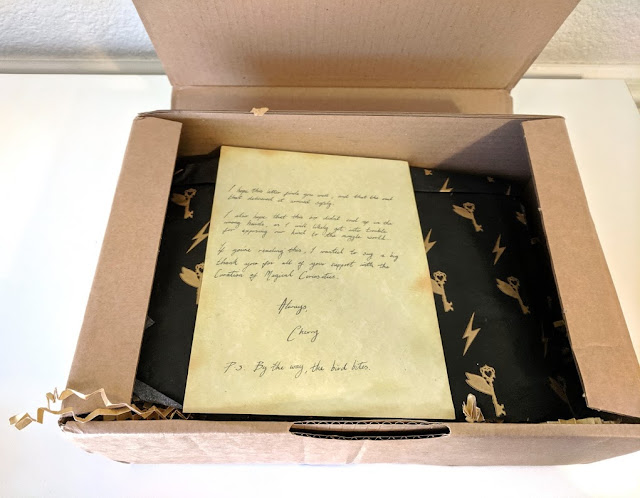 I hope this letter finds you well, and that the owl
that delivered it arrived safely.
I also hope that this box didn't end up in the
wrong hands, or I will likely get into trouble
for exposing our kind to the muggle world.
If you're reading this, I wanted to say a big
thank you for all of your support with the
Curation of Magical Curiosities.
Always,
Cherry
P.S. By the way, the bird bites.